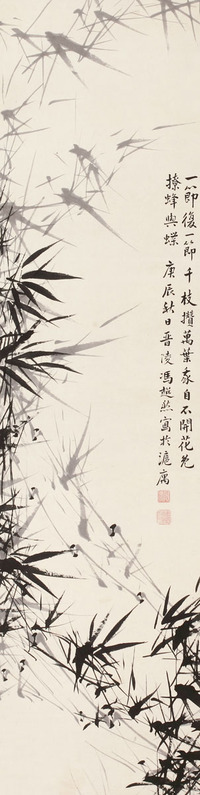 一節復一節千枝攢萬葉我自不開花免
撩蜂與蝶 庚辰秋日晉陵馮超然寫於滬寓